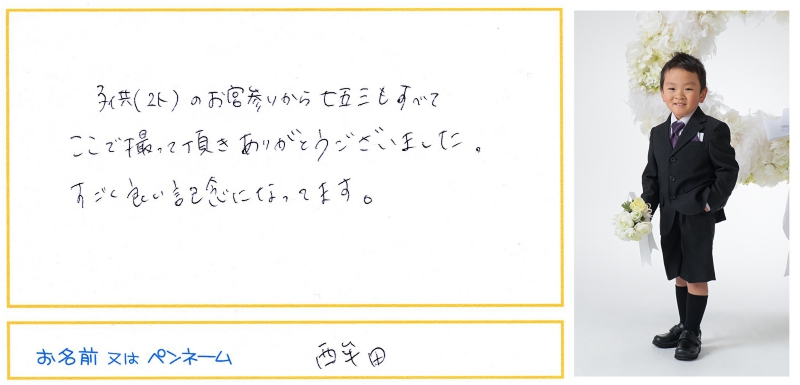 子供(2人)のお宮参りから七五三もすべて
ここで撮って頂きありがとうございました。
すごく良い記念になってます。
お名前 又は ペンネーム
西牟田